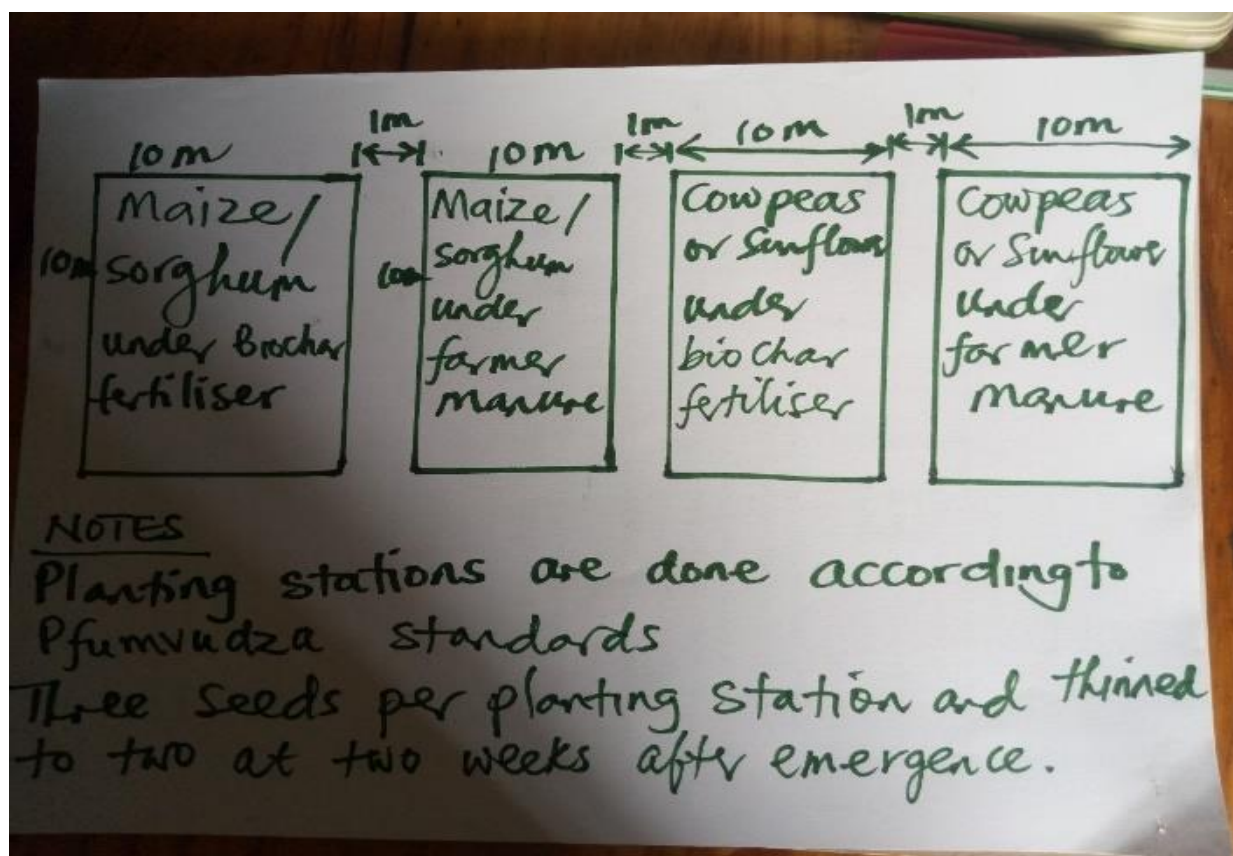 1m 1m 1m
10m 10m 10m 10m
Maize/
sorghum
under Biochar
fertiliser
10m
Maize/
sorghum
under
farmer
manure
10m
Cowpeas
or Sunflower
under
biochar
fertiliser
Cowpeas
or Sunflower
under
farmer
manure
NOTES
Planting stations are done according to
Pfumvudza standards
Three seeds per planting station and thinned
to two at two weeks after emergence.